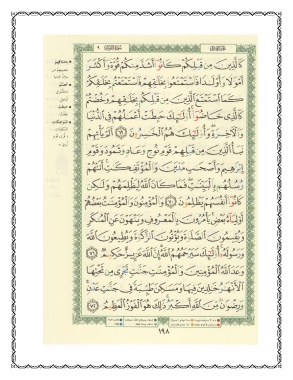 كَالَّذِينَ مِن قَبْلِكُمْ كَانُوٓا۟ أَشَدَّ مِنكُمْ قُوَّةً وَأَكْثَرَ
أَمْوَٰلًا وَأَوْلَٰدًا فَٱسْتَمْتَعُوا۟ بِخَلَٰقِهِمْ فَٱسْتَمْتَعْتُم بِخَلَٰقِكُمْ
كَمَا ٱسْتَمْتَعَ ٱلَّذِينَ مِن قَبْلِكُم بِخَلَٰقِهِمْ وَخُضْتُمْ
كَٱلَّذِى خَاضُوٓا۟ أُو۟لَٰٓئِكَ حَبِطَتْ أَعْمَٰلُهُمْ فِى ٱلدُّنْيَا
وَٱلْءَاخِرَةِ وَأُو۟لَٰٓئِكَ هُمُ ٱلْخَٰسِرُونَ ٦٩ أَلَمْ يَأْتِهِمْ
نَبَأُ ٱلَّذِينَ مِن قَبْلِهِمْ قَوْمِ نُوحٍ وَعَادٍ وَثَمُودَ وَقَوْمِ
إِبْرَٰهِيمَ وَأَصْحَٰبِ مَدْيَنَ وَٱلْمُؤْتَفِكَٰتِ أَتَتْهُمْ
رُسُلُهُم بِٱلْبَيِّنَٰتِ فَمَا كَانَ ٱللَّهُ لِيَظْلِمَهُمْ وَلَٰكِن
كَانُوٓا۟ أَنفُسَهُمْ يَظْلِمُونَ ٧٠ وَٱلْمُؤْمِنُونَ وَٱلْمُؤْمِنَٰتُ بَعْضُهُمْ
أَوْلِيَآءُ بَعْضٍ يَأْمُرُونَ بِٱلْمَعْرُوفِ وَيَنْهَوْنَ عَنِ ٱلْمُنكَرِ
وَيُقِيمُونَ ٱلصَّلَوٰةَ وَيُؤْتُونَ ٱلزَّكَوٰةَ وَيُطِيعُونَ ٱللَّهَ
وَرَسُولَهُۥٓ أُو۟لَٰٓئِكَ سَيَرْحَمُهُمُ ٱللَّهُ إِنَّ ٱللَّهَ عَزِيزٌ حَكِيمٌ ٧١
وَعَدَ ٱللَّهُ ٱلْمُؤْمِنِينَ وَٱلْمُؤْمِنَٰتِ جَنَّٰتٍ تَجْرِى مِن تَحْتِهَا
ٱلْأَنْهَٰرُ خَٰلِدِينَ فِيهَا وَمَسَٰكِنَ طَيِّبَةً فِى جَنَّٰتِ عَدْنٍ
وَرِضْوَٰنٌ مِّنَ ٱللَّهِ أَكْبَرُ ذَٰلِكَ هُوَ ٱلْفَوْزُ ٱلْعَظِيمُ ٧٢
١٩٨